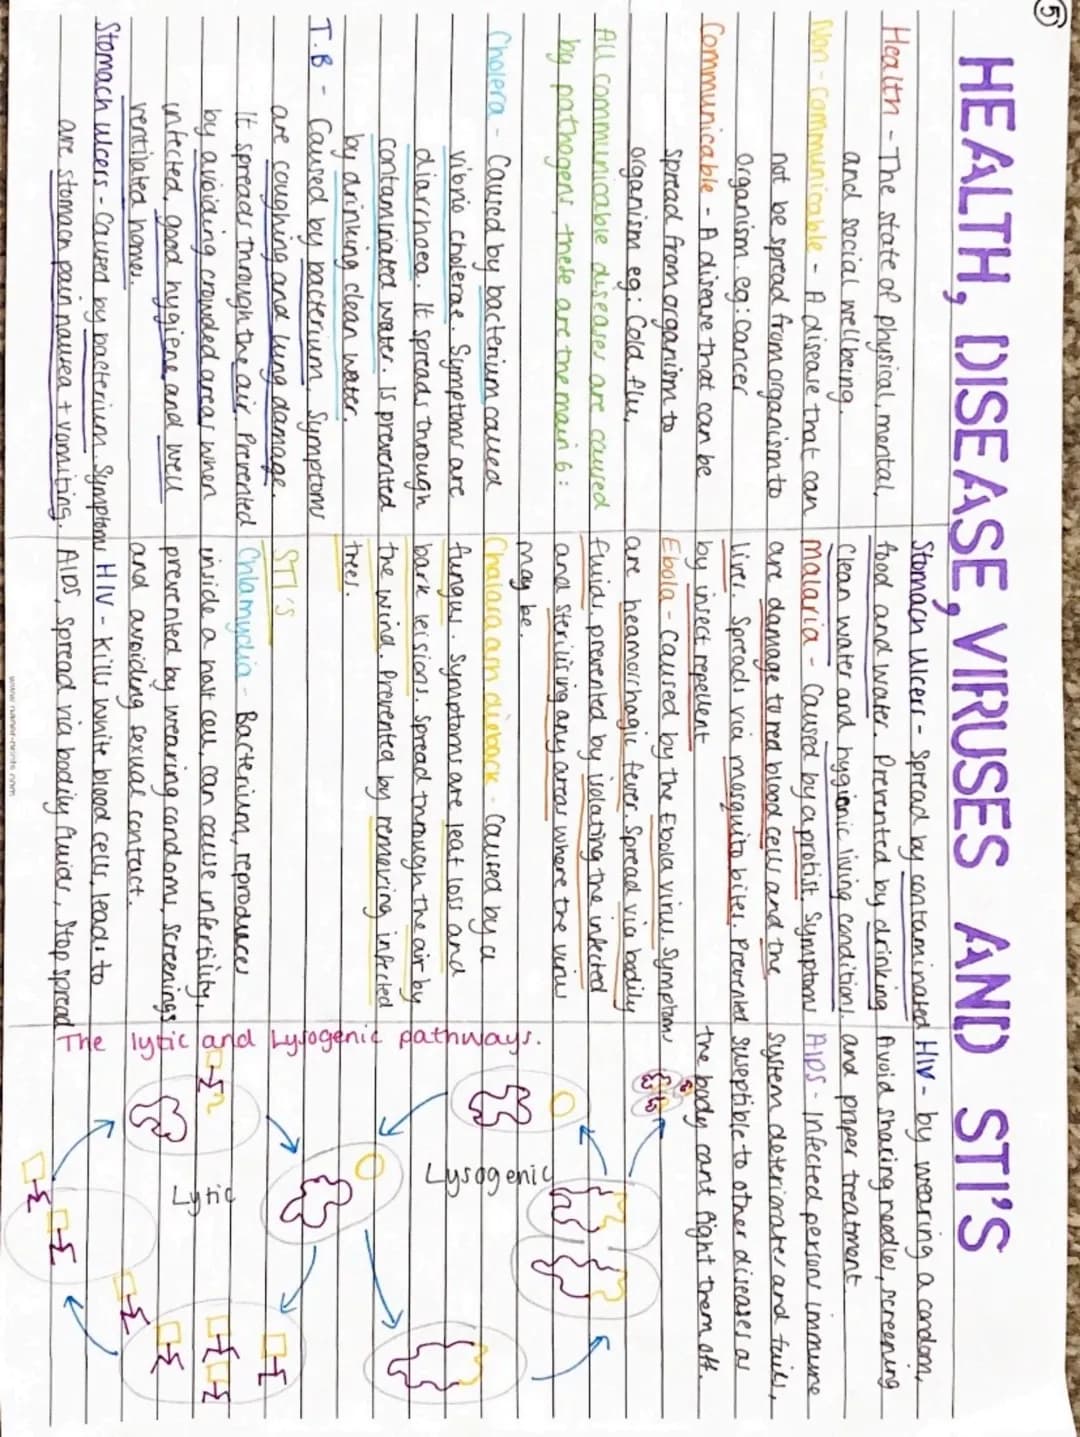 5
HEALTH, DISEASE, VIRUSES AND STI'S
Health - The state of physical, mental,
and social wellbeing.
Non-communicable - A disease that can
not be spread from organism to
organism. eg: cancer
Communicable - A disease that can be
spread from organism to
organism eg: cold, flu,
All communicable diseases are caused
by pathogens, these are the main 6:
Cholera - Caused by bacterium called
vibrio cholerae. Symptoms are
diarrhoea. It spreads through
contaminated water. Is prevented
by drinking clean water.
T.B - Caused by bacterium. Symptoms
are coughing and lung damage.
It spreads through the air. Prevented
by avoiding crowded areas when
infected, good hygiene and well
ventilated homes.
Stomach ulcers - Caused by bacterium. Symptoms
are stomach pain, nausea + vomiting.
Stomach Ulcers - Spread by contaminated
food and water. Prevented by drinking
clean water and hygienic living conditions.
Malaria - Caused by a protist. Symptoms
are damage to red blood cells and the
liver. Spreads via mosquito bites. Prevented
by insect repellent
Ebola - Caused by the Ebola virus. Symptoms
are heamorrhagic fever. Spread via bodily
fluids, prevented by isolating the infected
and sterilising any areas where the virus
may be.
Chalara ash dieback - Caused by a
fungus. Symptoms are leaf loss and
bark leisions. Spread through the air by
the wind. Prevented by removing infected
trees.
STI's
Chlamydia - Bacterium, reproduces
inside a host cell, can cause infertility,
prevented by wearing condoms, screenings
and avoiding sexual contact.
HIV - Kills white blood cells, leads to
AIDS, Spread via bodily fluids, Stop spread
HIV - by wearing a condom,
Avoid sharing needles, screening
and proper treatment.
AIDS - Infected persons immune
system deteriorates and fails,
suseptible to other diseases as
the body cant fight them off.
The lytic and Lysogenic pathways.
Lysogenic
Lytic